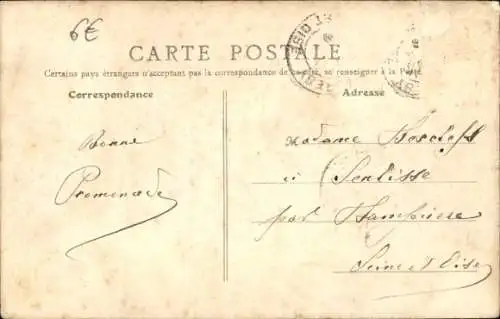 6€
CARTE POSTALE
Certains pays étrangers n'acceptant pas la correspondance de ce côté, se renseigner à la Poste
Correspondance
Adresse
Bonne
Promenade
Madame
à Senlisse
par
Seine et Oise
ET OISE